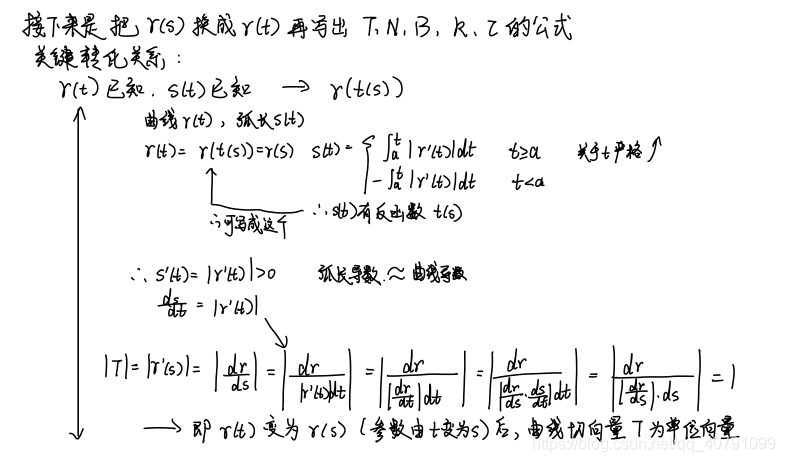 接下来是把 r(s) 换成 r(t) 再写出 T, N, B, K, τ 的公式
关键转化关系:
r(t) 已知, s(t) 已知 → r(t(s))
曲线 r(t), 弧长 s(t)
r(t) = r(t(s)) = r(s) s(t) = { ∫ₐᵗ |r'(t)|dt t≥a 关于t严格↗
-∫ₐᵗ |r'(t)|dt t<a
∴可写成这个 ∴ s(t)有反函数 t(s)
∴ s'(t) = |r'(t)| > 0 弧长导数 ≈ 曲线导数
ds/dt = |r'(t)|
|T| = |r'(s)| = |dr/ds| = |dr/(|r'(t)|dt)| = |dr/(|dr/dt|dt)| = |dr/(|dr/ds · ds/dt|dt)| = |dr/(|dr/ds|·ds)| = 1
→ 即 r(t) 变为 r(s) (参数由t变为s) 后, 曲线切向量 T 为单位向量
https://blog.csdn.net/qq_40791099